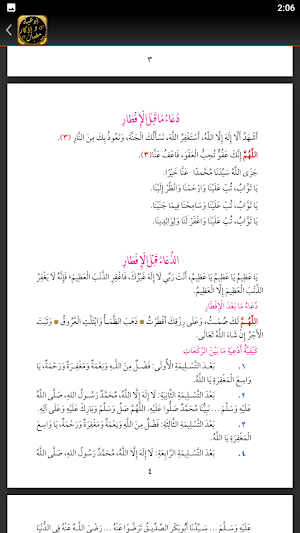 2:06
أدعية
وأذكار
رمضان
٣
دُعَاءُ مَا قَبْلَ الْإِفْطَارِ
أَشْهَدُ أَلَّا إِلَهَ إِلَّا اللَّهُ، أَسْتَغْفِرُ اللَّهَ، نَسْأَلُكَ الْجَنَّةَ، وَنَعُوذُ بِكَ مِنَ النَّارِ (٣).
اللَّهُمَّ إِنَّكَ عَفُوٌّ تُحِبُّ الْعَفْوَ، فَاعْفُ عَنَّا (٣).
جَزَى اللَّهُ سَيِّدَنَا مُحَمَّدًا عَنَّا خَيْرًا.
يَا تَوَّابُ، تُبْ عَلَيْنَا وَارْحَمْنَا وَانْظُرْ إِلَيْنَا.
يَا تَوَّابُ، تُبْ عَلَيْنَا وَسَامِحْنَا فِيمَا جَنَيْنَا.
يَا تَوَّابُ، تُبْ عَلَيْنَا وَاغْفِرْ لَنَا وَلِوَالِدِينَا.
الدُّعَاءُ قَبْلَ الْإِفْطَارِ
يَا عَظِيمُ يَا عَظِيمُ يَا عَظِيمُ، أَنْتَ رَبِّي لَا إِلَهَ غَيْرُكَ، فَاغْفِرِ الذَّنْبَ الْعَظِيمَ؛ فَإِنَّهُ لَا يَغْفِرُ
الذَّنْبَ الْعَظِيمَ إِلَّا الْعَظِيمُ.
دُعَاءُ مَا بَعْدَ الْإِفْطَارِ
اللَّهُمَّ لَكَ صُمْتُ، وَعَلَى رِزْقِكَ أَفْطَرْتُ ۞ ذَهَبَ الظَّمَأُ وَابْتَلَّتِ الْعُرُوقُ ۞ وَثَبَتَ
الْأَجْرُ إِنْ شَاءَ اللَّهُ تَعَالَى.
كَيْفِيَّةُ أَدْعِيَةِ مَا بَيْنَ الرَّكَعَاتِ
١. بَعْدَ التَّسْلِيمَةِ الْأُولَى: فَضْلٌ مِنَ اللَّهِ وَنِعْمَةٌ وَمَغْفِرَةٌ وَرَحْمَةٌ، يَا
وَاسِعَ الْمَغْفِرَةِ يَا اللَّهُ.
٢. بَعْدَ التَّسْلِيمَةِ الثَّانِيَةِ: لَا إِلَهَ إِلَّا اللَّهُ، مُحَمَّدٌ رَسُولُ اللهِ، صَلَّى اللَّهُ
عَلَيْهِ وَسَلَّمَ ... نَبِيُّنَا مُحَمَّدٌ صَلُّوا عَلَيْهِ. اللَّهُمَّ صَلِّ وَسَلِّمْ وَبَارِكْ عَلَيْهِ وَعَلَى آلِهِ.
٣. بَعْدَ التَّسْلِيمَةِ الثَّالِثَةِ: فَضْلٌ مِنَ اللَّهِ وَنِعْمَةٌ وَمَغْفِرَةٌ وَرَحْمَةٌ، يَا وَاسِعَ
الْمَغْفِرَةِ يَا اللَّهُ.
٤. بَعْدَ التَّسْلِيمَةِ الرَّابِعَةِ: لَا إِلَهَ إِلَّا اللَّهُ، مُحَمَّدٌ رَسُولُ اللهِ، صَلَّى اللَّهُ
٤
عَلَيْهِ وَسَلَّمَ ... سَيِّدُنَا أَبُو بَكَرٍ الصِّدِّيقُ تَرَضَّوْا عَنْهُ ... رَضِيَ اللَّهُ عَنْهُ فِي الدُّنْيَا